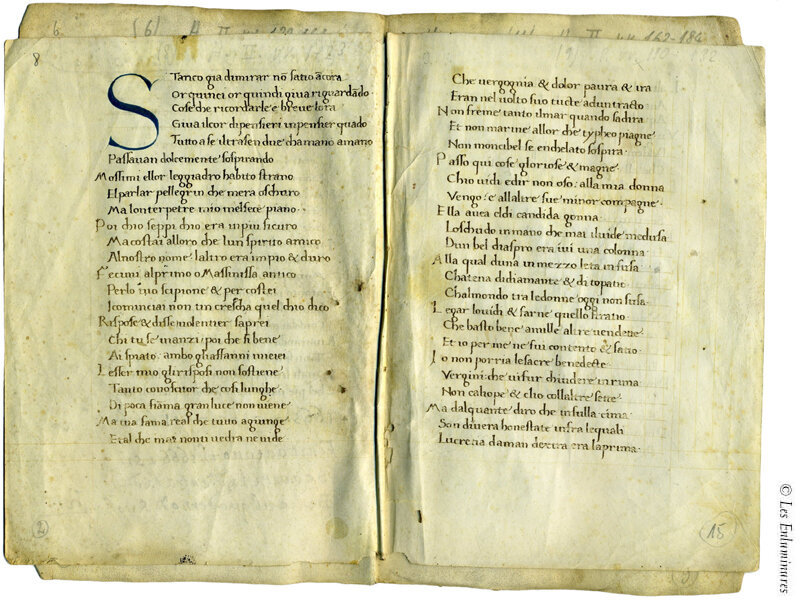 6 (6) A II 162-184
8
STanco gia dimirar nõ satio ãcora
Or quinci or quindi giua riguardãdo
Cose che ricordarle e breve lora
Giua ilcor dipensieri inpensier quãdo
Tutto a se iltrasen due chamano amano
Passauan dolcemente sospirando
Mossimi ellor leggiadro habito strano
El parlar pellegrin che mera oschuro
Ma lonterpetre mio melfece piano
Poi chio seppi chio era inpiu sicuro
Macostai alloro che lun spirito amico
Alnostro nome laltro era impio & duro
Fecimi alprimo o Massinissa antico
Perlo tuo scipione & per costei
Icominciai non tin crescha quel chio dico
Rispose & disse molentier saprei
Chi tu se inanzi poi che si bene
Ai spiato ambo gliaffanni miei
Lesser mio gli risposi non sostiene
Tanto conoscitor che cosi lunghe
Di poca fiãma gran luce non uiene
Ma tua fama real che tutto agiunge
Etal che mai nonti uedra ne uide
2
Che uergognia & dolor paura & ira
Eran nel uolto suo tucte aduntracto
Non freme tanto ilmar quando sadira
Et non marine allor che typheo piagne
Non moncibel se enchelato sospira
Passo qui cose gloriose & magne
Chio uidi edir non oso alla mia donna
Vengo & allaltre sue minor compagne
Ella auea ĩdi candida gonna
Loschudo inmano che mal iluide medusa
Dun bel diaspro era iui una colonna
Alla qual duna inmezzo leta infusa
Chatena didiamante & di topatio
Chalmondo tra ledonne oggi non susa
Legar louidi & farne quello stratio
Che basto bene amille altre uendette
Et io per me ne fui contento & satio
Io non porria lesacre benedecte
Vergini che uifur chiudere inrima
Non caliope & clio collaltre sette
Ma dalquante diro che insulla cima
Son diuera honestate infra lequali
Lucretia daman dextra era laprima
15
© Les Enluminures